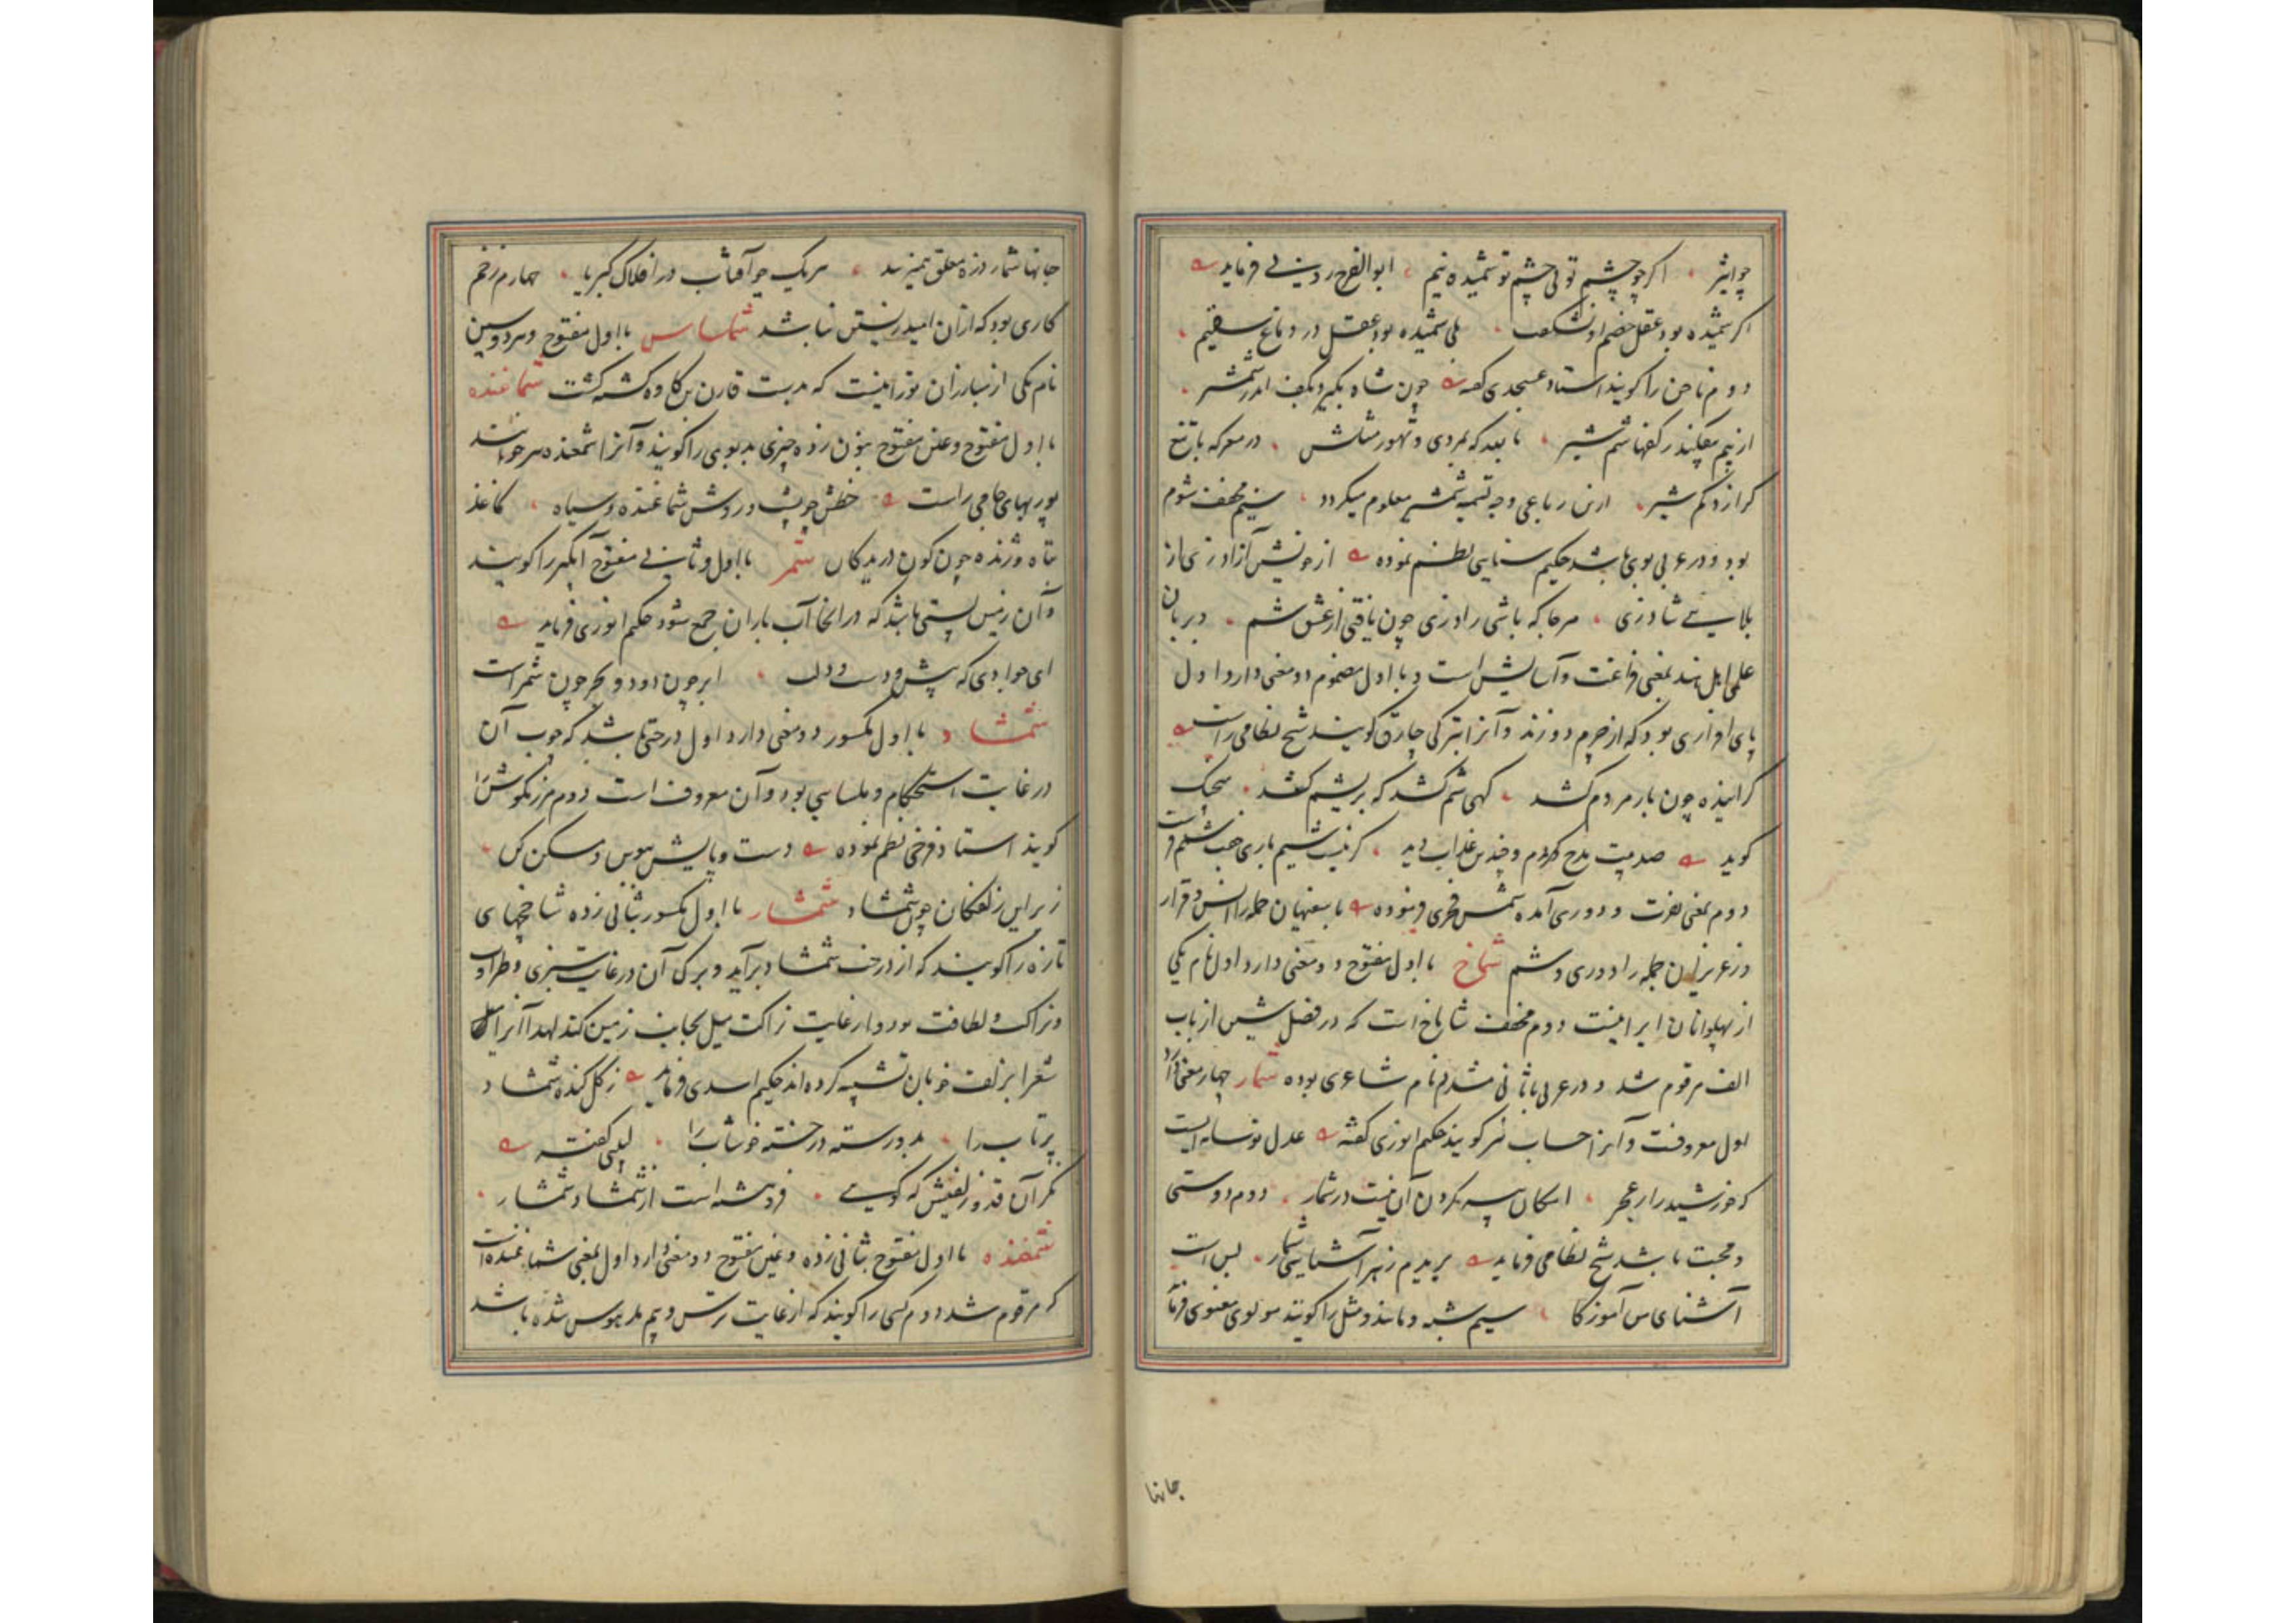 چو ابتر اکر چو چشم تو بی چشم تو شمیده نیم ابوالفرج رونی فرماید
اکر شمیده بود عقل خصم او نشکفت بلی شمیده بود عقل در دماغ سقیم
دوم ناخن را کویند استاد عسجدی کفته چون شاه بکیرد بکف اندر شمشیر
از بیم بیفکند ز کفها شم شیر با ببر که بمردی و تهور مثلش در معرکه با تیغ
کر ازد کم شیر ازین رباعی وجه تسمیه شمشیر معلوم میکردد سیم مخفف شوم
بود و در عربی بوی باشد حکیم سنایی نظم نموده از خویش آزاد زی از
بلایی شاد زی هر جا که باشی راد زی چون یافتی از عشق شم در زبان
علمی اهل هند بمعنی فراغت و آسایش است و با اول مضموم دو معنی دارد اول
پای افزاری بود که از چرم دوزند و آنرا بترکی چارق کویند شیخ نظامی راست
کراینده چون بار مردم کشد کهی شم کشد که بریشم کشد
کوید صد بیت مدح کردم و چندین عذاب دید کر نیست سیم باری
دوم بمعنی نفرت و دوری آمده شمس فخری فرموده با سفیهان جمله را انس و قرار
وز عزیزان جمله را دوری و شم شماخ با اول مفتوح دو معنی دارد اول نام یکی
از پهلوانان ایرانیست دوم مخفف شاماخ است که در فصل شین از باب
الف مرقوم شد و در عربی با ثانی مشدد نام شاعری بوده شمار چهار معنی دارد
اول معروفست و آنرا حساب نیز کویند حکیم انوری کفته عدل تو سایه ایست
که خورشید را ز عجز امکان پیسه کردن آن نیست در شمار دوم دوستی
و محبت باشد شیخ نظامی فرماید بریدم ز هر آشنایی شمار بس است
آشنای من آموزکار سیم شبه و مانند و مثل را کویند مولوی معنوی فرماید
جانها
جانها شمار ذره معلق همیزنند هریک چو آفتاب در افلاک کبریا چهارم زخم
کاری بود که از آن امید زیستن نباشد شماساس با اول مفتوح و هردو سین
نام یکی از مبارزان تورانیست که بدست قارن بن کاوه کشته کشت شماغنده
با اول مفتوح و غین مفتوح بنون زده چیزی بدبوی را کویند و آنرا شمغنده نیز خوانند
پور بهای جامی راست خطش چو پشت و روش شماغنده و سیاه کاغذ
تباه و ژنده چون کون دریدکان شمر با اول و ثانی مفتوح آبکیر را کویند
و آن زمین پستی باشد که در آنجا آب باران جمع شود حکیم انوری فرماید
ای جوادی که پیش دست و دلت ابر چون دود و بحر چون شمر است
شمشاد با اول مکسور دو معنی دارد اول درختی باشد که چوب آن
در غایت استحکام و ملساسی بود و آن معروف است دوم مرزنکوش را
کویند استاد فرخی نظم نموده دست و پایش ببوس و مسکن کن
زیر این زلفکان چون شمشاد شمشار با اول مکسور بثانی زده شاخچهای
تازه را کویند که از درخت شمشاد برآید و برک آن در غایت سبزی و طراوت
و نزاکت و لطافت بود و از غایت نزاکت میل بجانب زمین کند لهذا آنرا
شعرا بزلف خوبان تشبیه کرده اند حکیم اسدی فرماید ز کل کنده شمشاد
پرتاب را بدو رسته در خسته خوشاب را لبیبی کفته
نکر آن قد و زلفینش که کویی فروهشته است از شمشاد شمشار
شمغنده با اول مفتوح بثانی زده و غین مفتوح دو معنی دارد اول بمعنی شماغنده است
که مرقوم شد دوم کسی را کویند که از غایت ترس و بیم مدهوش شده باشد